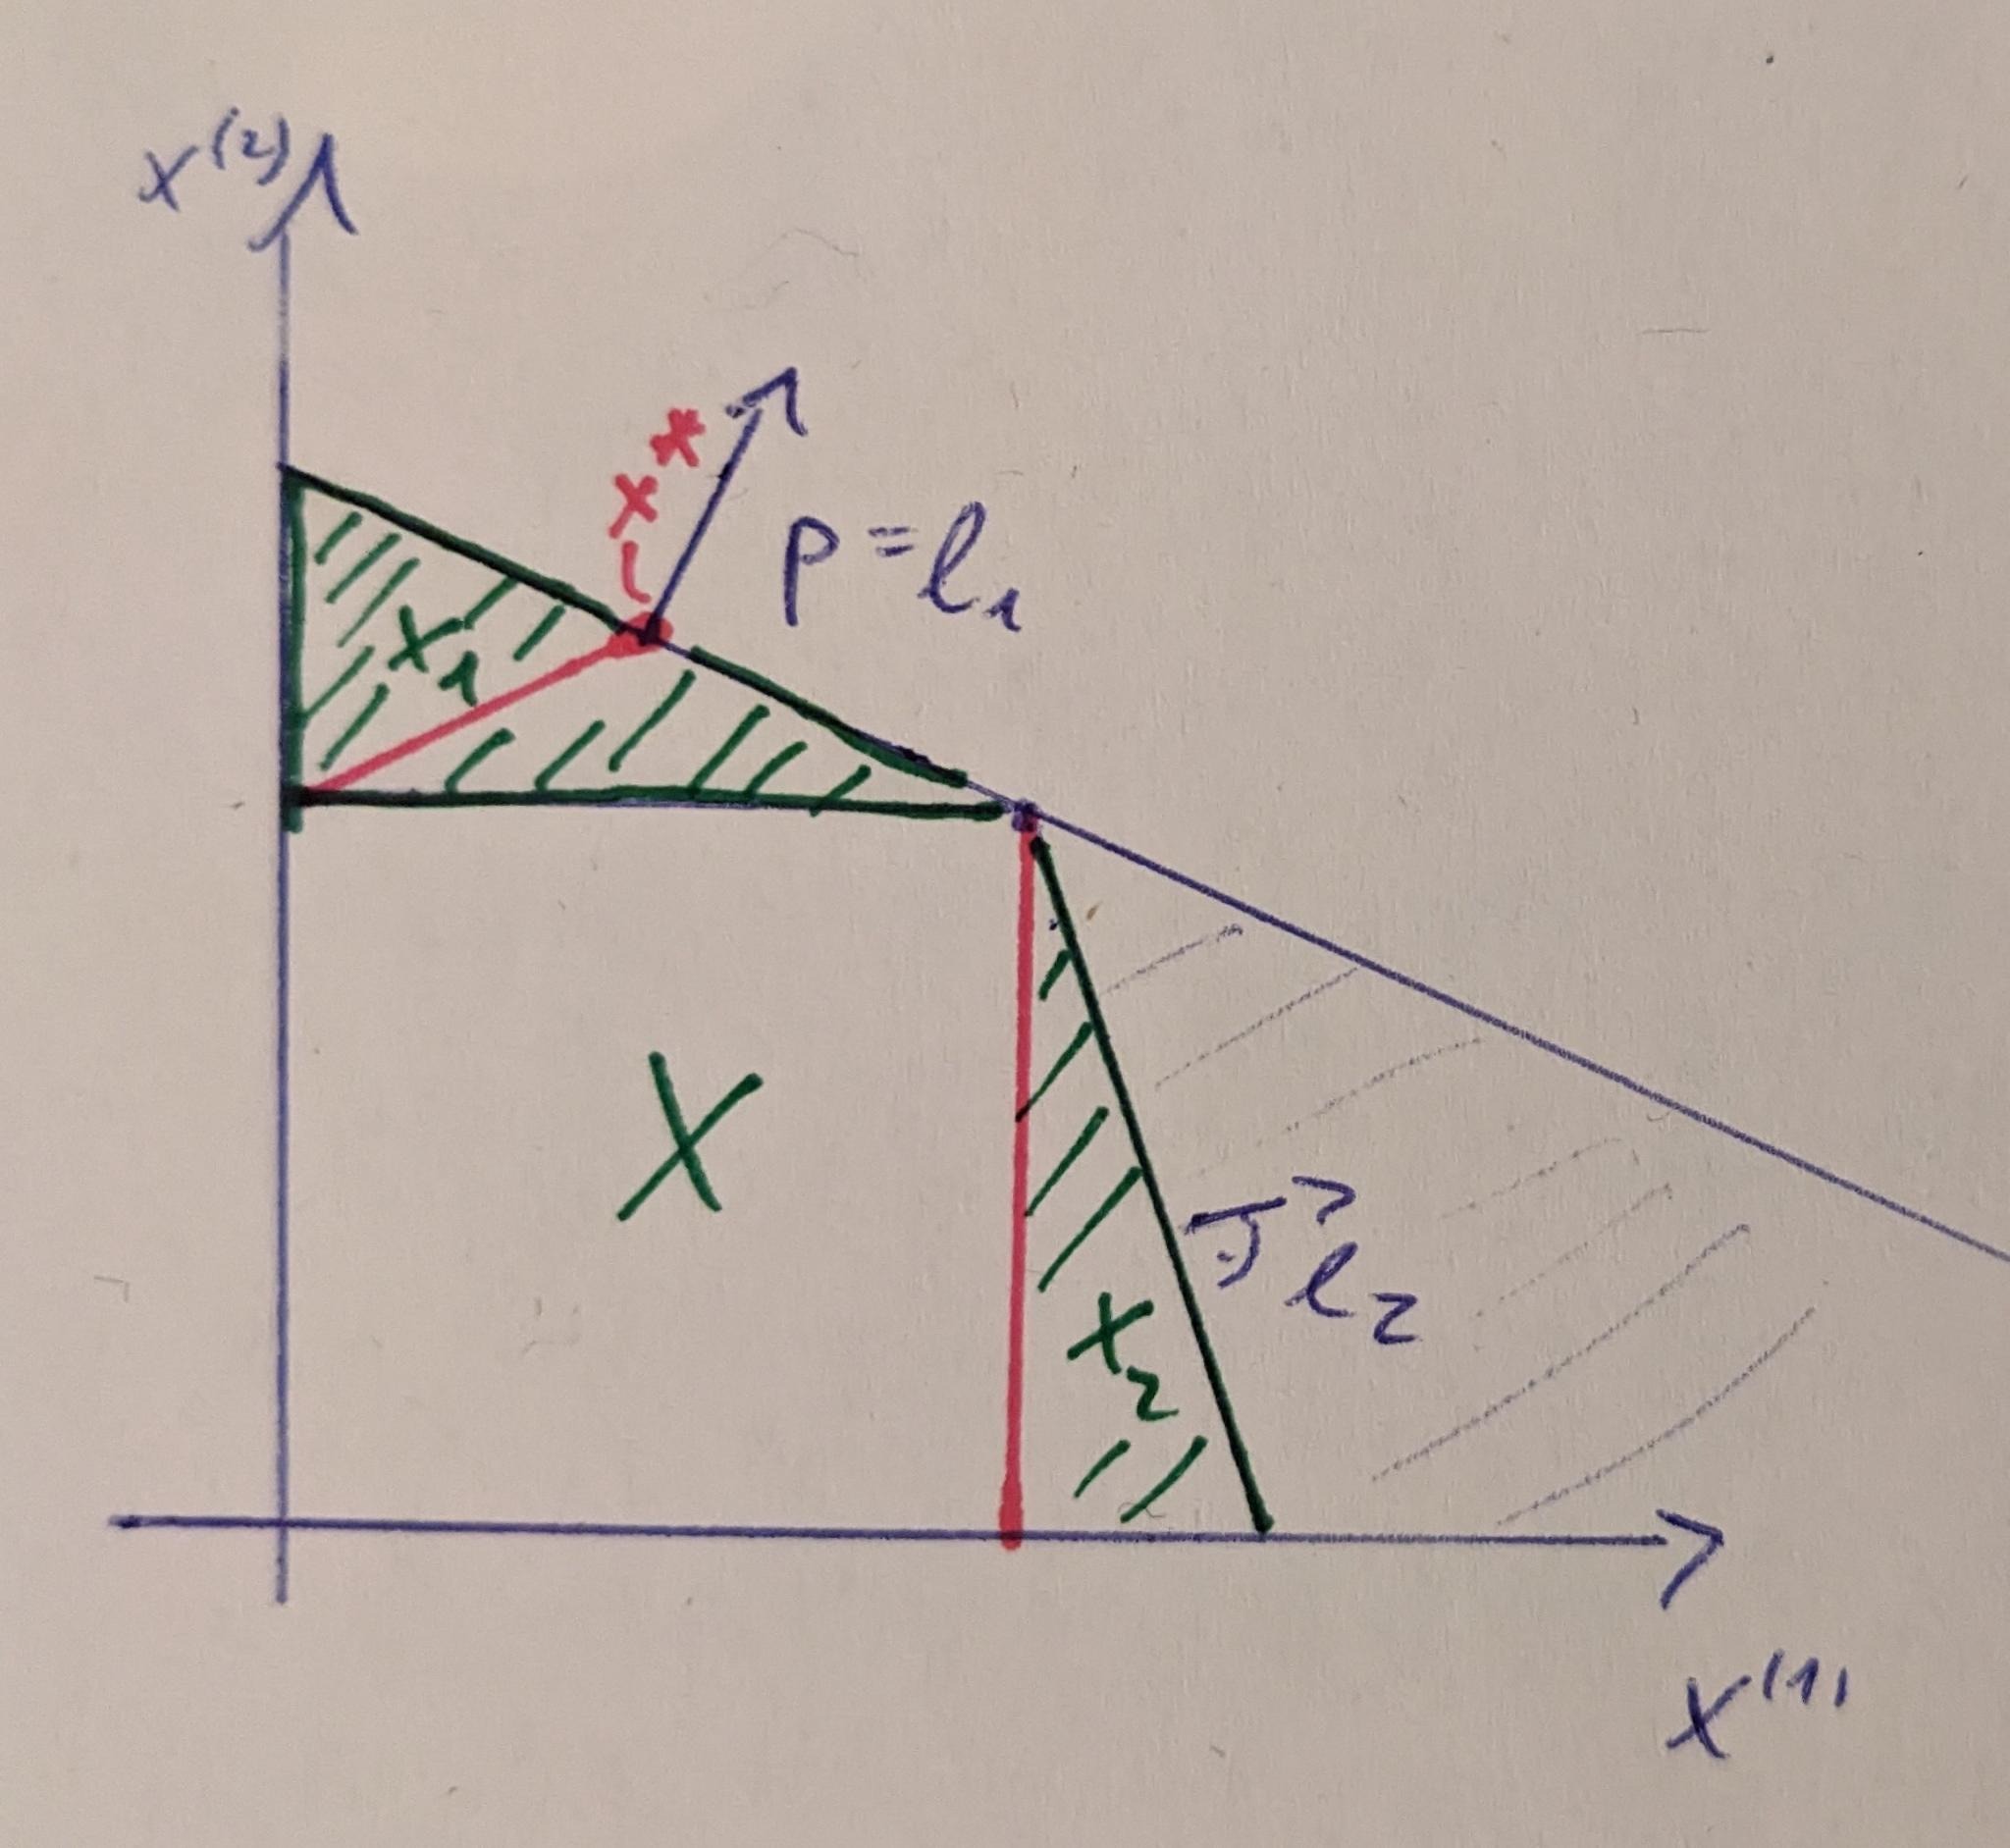 x⁽²⁾
x₁*
p = l₁
X₁
X
l₂
X₂
x⁽¹⁾